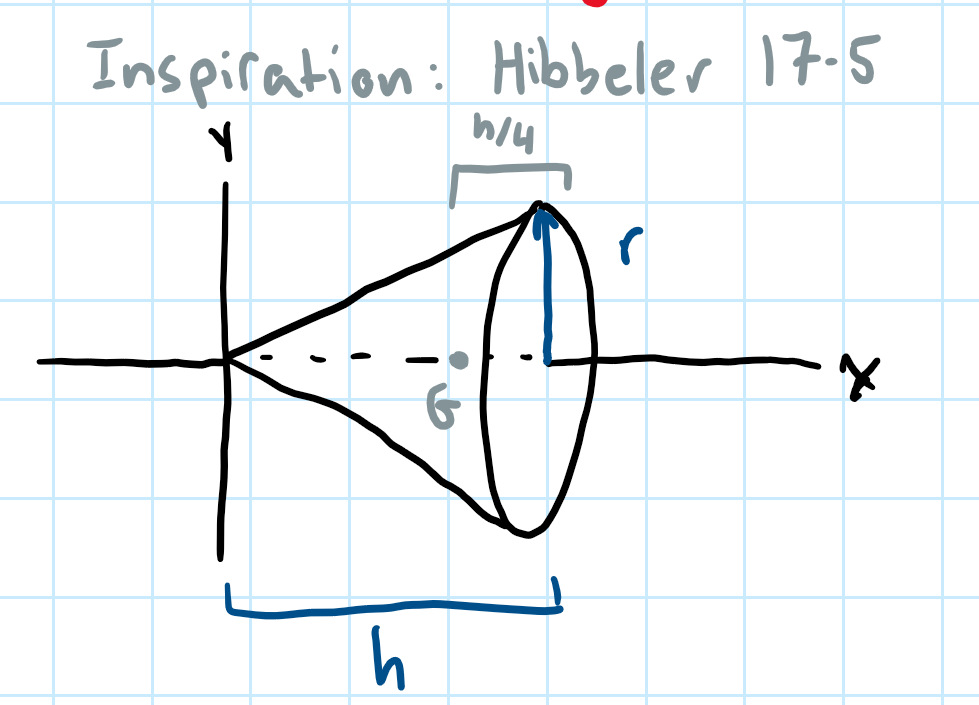 Inspiration: Hibbeler 17-5
h/4
Y
r
X
G
h